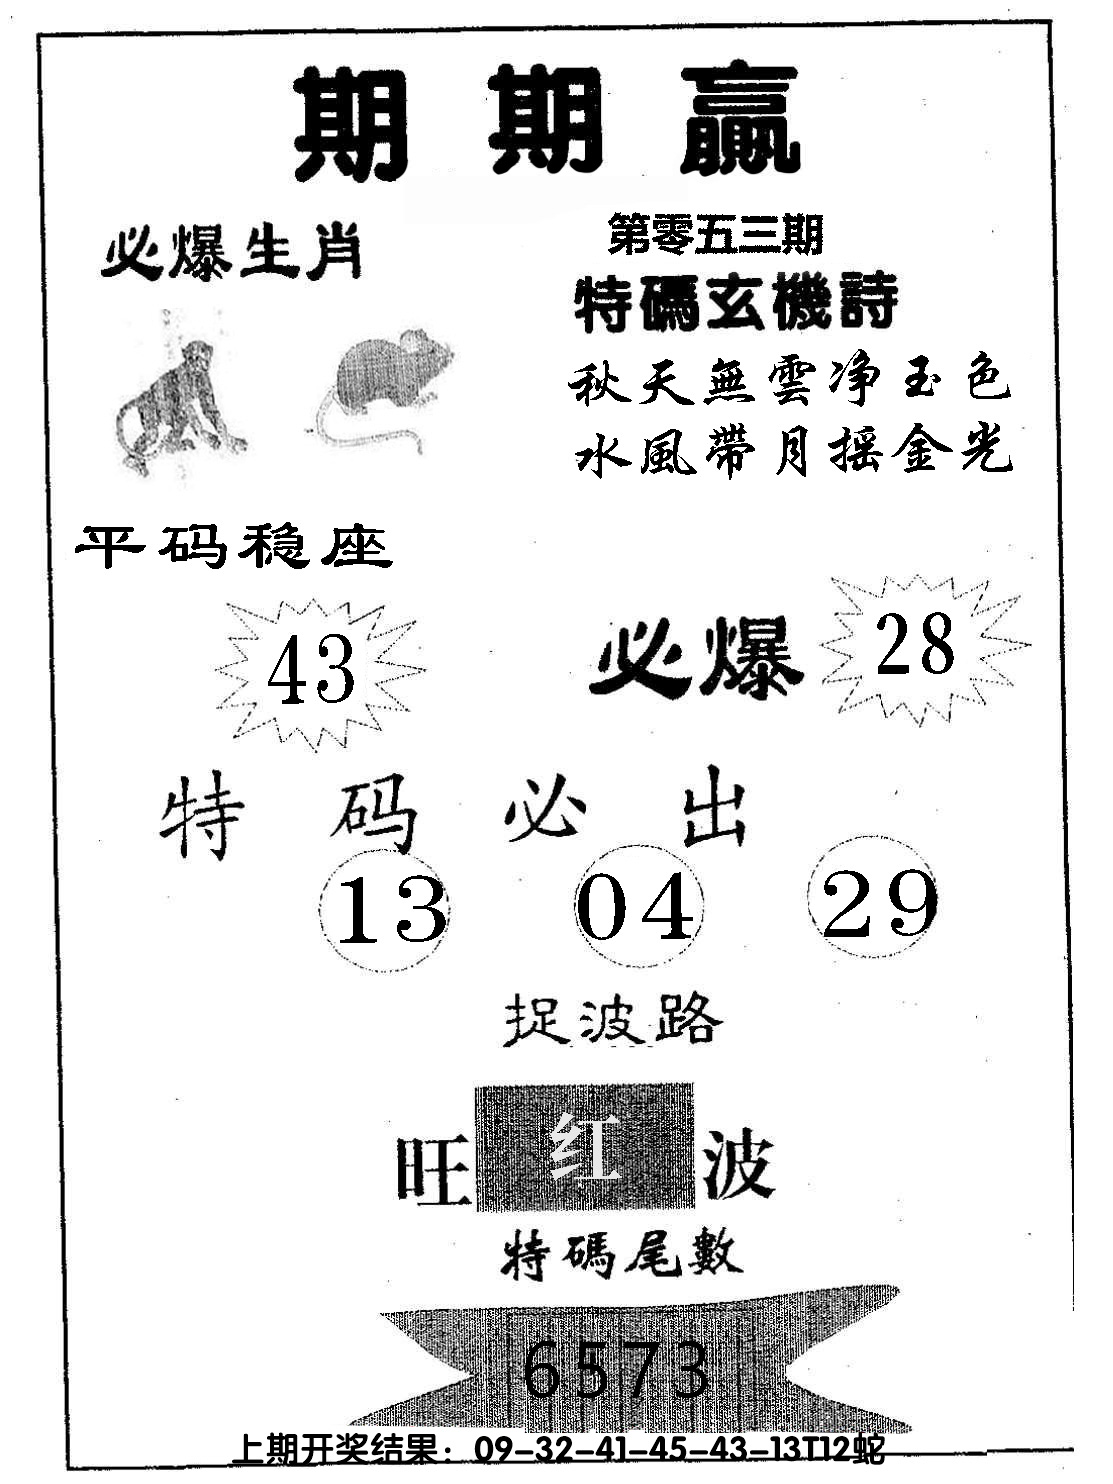 期期赢
必爆生肖
第零五三期
特碼玄機詩
秋天無雲净玉色
水風帶月摇金光
平码稳座
43
必爆
28
特码必出
13 04 29
捉波路
旺红波
特碼尾數
6573
上期开奖结果：09-32-41-45-43-13T12蛇